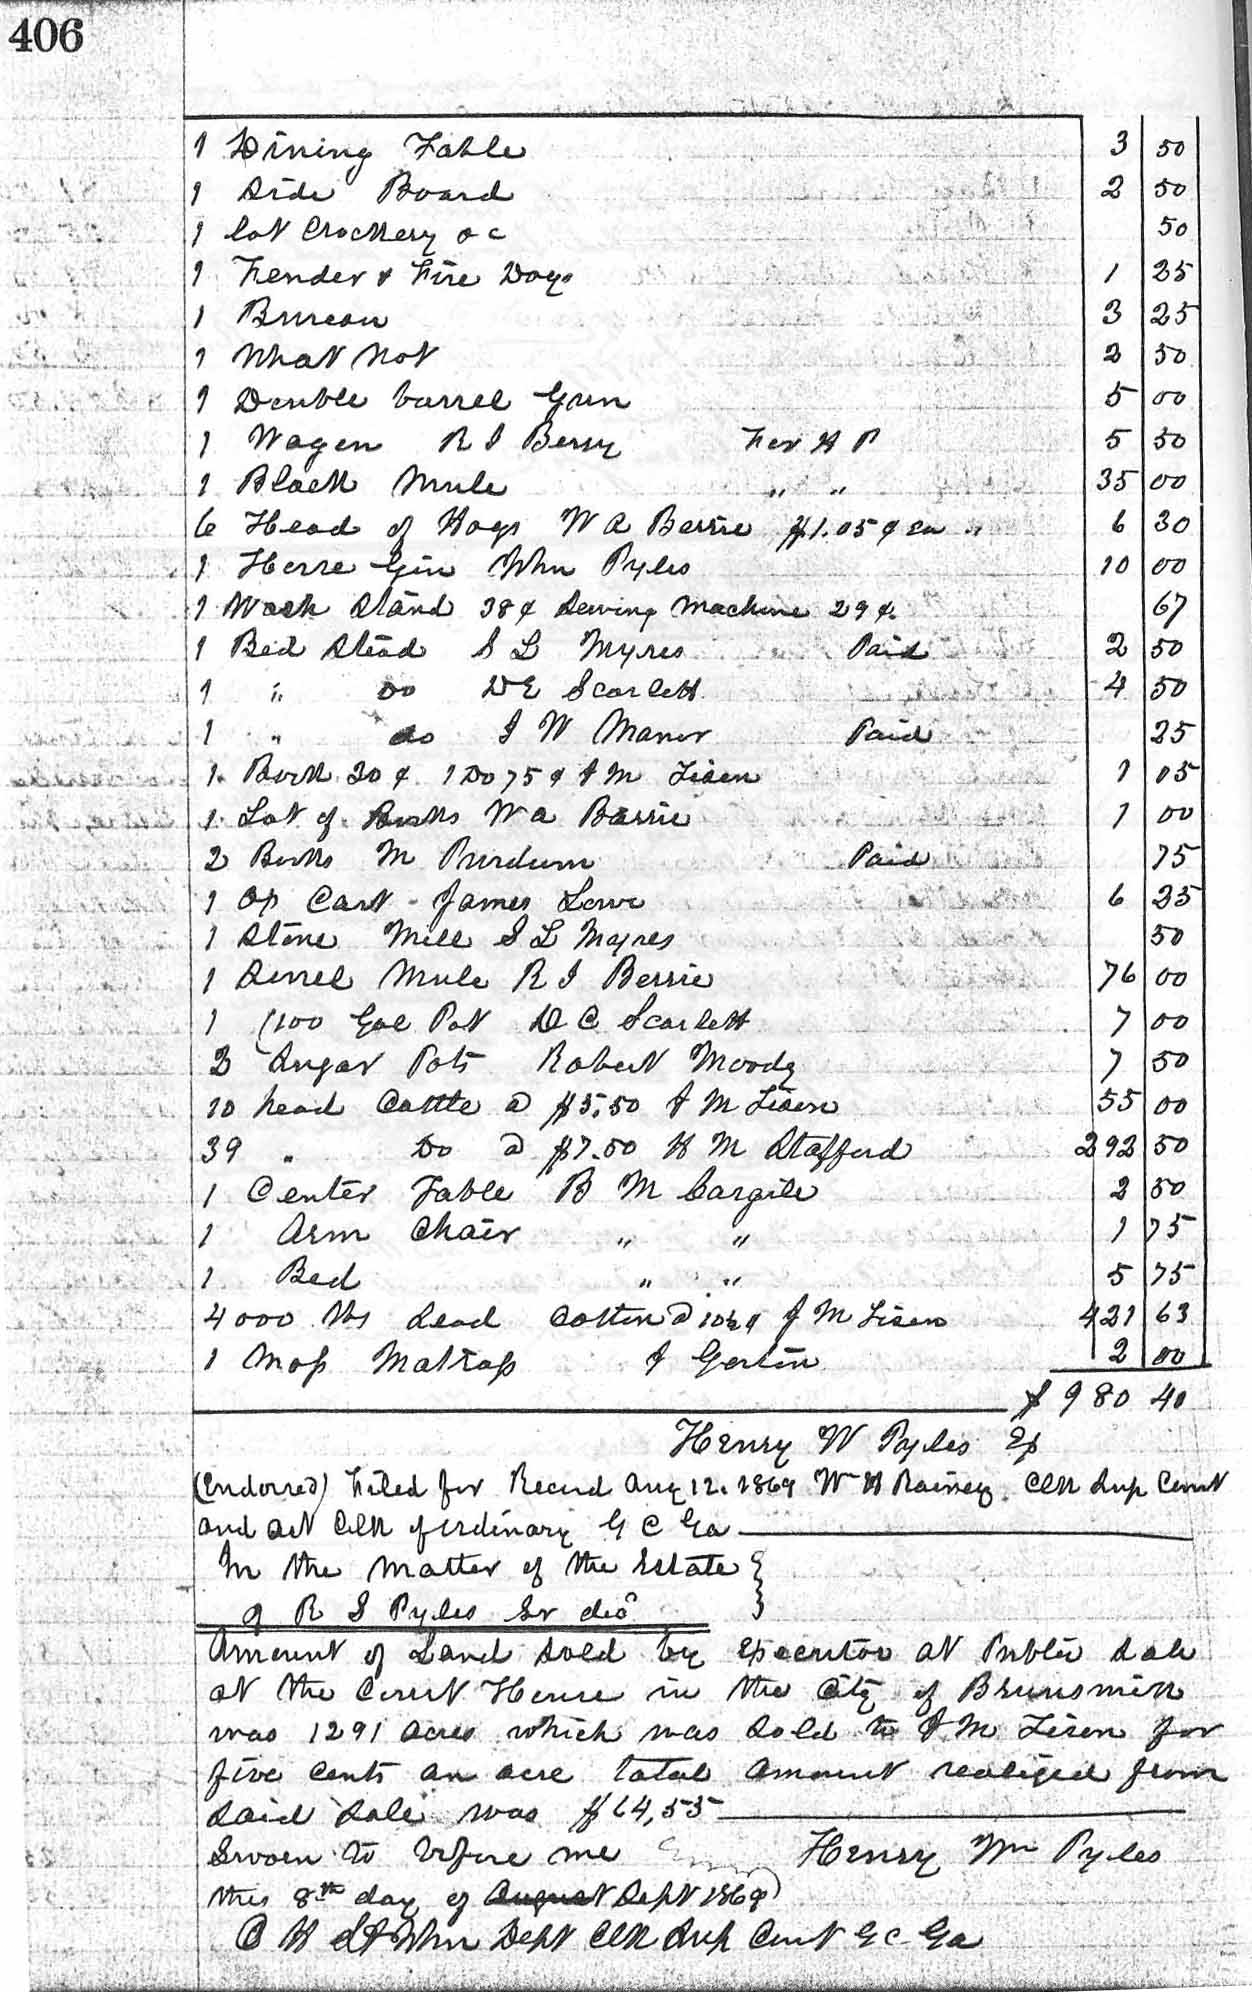 406
1 Dining Table 3 50
1 Side Board 2 50
1 lot Crockery &c 50
1 Fender & Fire Dogs 1 25
1 Bureau 3 25
1 What Not 2 50
1 Double barrel Gun 5 00
1 Wagon R J Berry For H P 5 50
1 Black Mule " " 35 00
6 Head of Hogs W A Berrie $1.05¢ ea " 6 30
1 Horse Gin Wm Pyles 10 00
1 Wash Stand 38¢ Sewing Machine 29¢. 67
1 Bed Stead S L Myres Paid 2 50
1 " Do D E Scarlett 4 50
1 " do J W Manor Paid 25
1 Book 30¢ 1 Do 75¢ J M Tison 1 05
1 Lot of Books W A Barrie 1 00
2 Books M Purdum Paid 75
1 Ox Cart James Lowe 6 25
1 Stone Mill S L Myres 50
1 Sorrel Mule R J Berrie 76 00
1 (100 Gal Pot D C Scarlett 7 00
3 Sugar Pots Robert Moody 7 50
10 head Cattle @ $5.50 J M Tison 55 00
39 " Do @ $7.50 H M Stafford 292 50
1 Center Table B M Cargile 2 50
1 Arm Chair " " 1 75
1 Bed " " 5 75
4000 lbs Seed Cotton @ 10½¢ J M Tison 421 63
1 Moss Matrass J Gerlin 2 00
$ 980 40
Henry W Pyles Ex
(Endorsed) Filed for Record Aug 12. 1869 W H Rainey Clk Sup Court
and Act Clk of ordinary G C Ga
In the Matter of the Estate }
of R S Pyles Sr decd }
Amount of Land Sold by Executor at Public Sale
at the Court House in the City of Brunswick
was 1291 acres which was Sold to J M Tison for
five cents an acre total amount realized from
Said Sale was $64,55
Sworn to before me Henry Wm Pyles
this 8th day of August Sept 1869
C H Dept Clk Sup Court G C Ga